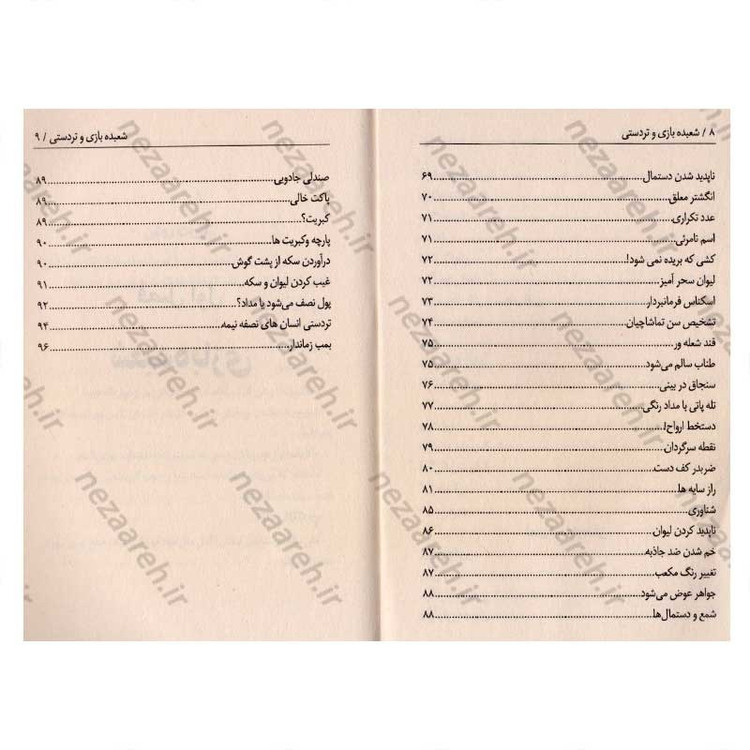 ۸ / شعبده بازی و تردستی
ناپدید شدن دستمال........۶۹
انگشتر معلق........۷۰
عدد تکراری........۷۱
اسم نامرئی........۷۱
کشی که بریده نمی شود!........۷۲
لیوان سحر آمیز........۷۲
اسکناس فرمانبردار........۷۳
تشخیص سن تماشاچیان........۷۴
قند شعله ور........۷۵
طناب سالم می‌شود........۷۵
سنجاق در بینی........۷۶
تله پاتی با مداد رنگی........۷۷
دستخط ارواح!........۷۸
نقطه سرگردان........۷۹
ضربدر کف دست........۸۰
راز سایه ها........۸۱
شناوری........۸۵
ناپدید کردن لیوان........۸۶
خم شدن ضد جاذبه........۸۷
تغییر رنگ مکعب........۸۷
جواهر عوض می‌شود........۸۸
شمع و دستمال‌ها........۸۸
شعبده بازی و تردستی / ۹
صندلی جادویی........۸۹
پاکت خالی........۸۹
کبریت؟........۸۹
پارچه وکبریت ها........۹۰
درآوردن سکه از پشت گوش........۹۰
غیب کردن لیوان و سکه........۹۱
پول نصف می‌شود یا مداد؟........۹۲
تردستی انسان های نصفه نیمه........۹۴
بمب زماندار........۹۶
nezaareh.ir